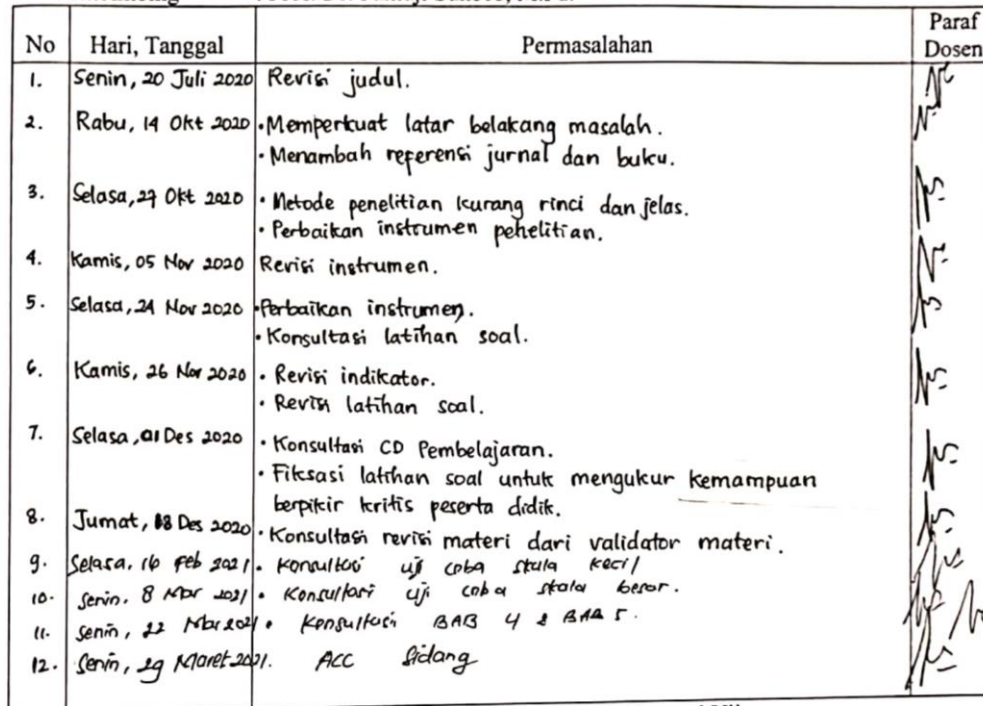 No Hari, Tanggal Permasalahan Paraf Dosen
1. Senin, 20 Juli 2020 Revisi judul.
2. Rabu, 14 Okt 2020 • Memperkuat latar belakang masalah.
• Menambah referensi jurnal dan buku.
3. Selasa, 27 Okt 2020 • Metode penelitian kurang rinci dan jelas.
• Perbaikan instrumen penelitian.
4. Kamis, 05 Nov 2020 Revisi instrumen.
5. Selasa, 24 Nov 2020 • Perbaikan instrumen.
• Konsultasi latihan soal.
6. Kamis, 26 Nov 2020 • Revisi indikator.
• Revisi latihan soal.
7. Selasa, 01 Des 2020 • Konsultasi CD Pembelajaran.
• Fiksasi latihan soal untuk mengukur kemampuan
berpikir kritis peserta didik.
8. Jumat, 18 Des 2020 • Konsultasi revisi materi dari validator materi.
9. Selasa, 16 Feb 2021 • Konsultasi uji coba skala kecil
10. Senin, 8 Mar 2021 • Konsultasi uji coba skala besar.
11. Senin, 22 Mar 2021 • Konsultasi BAB 4 & BAB 5.
12. Senin, 29 Maret 2021. ACC Sidang